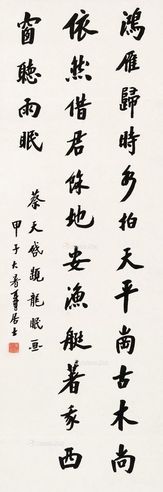 鴻雁歸時水拍天平崗古木尚
依然借君餘地安漁艇著我西
窗聽雨眠
蔡天啟題龍眠畫
甲子大暑居士